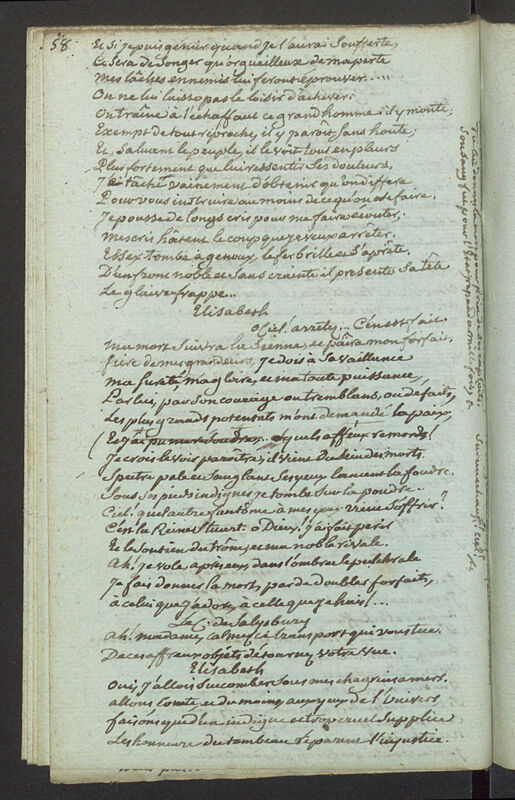 58.
Et si je puis gémir quand je l'aurai soufferte,
Ce sera de songer qu'orgueilleux de ma perte
Mes lâches ennemis lui feront éprouver.....
On ne lui laisse pas le loisir d'achever.
On traîne à l'échaffaut ce grand homme: il y monte;
Exempt de tout réproche, il y paroît sans honte;
Et, saluant le peuple, il le voit tout en pleurs
Plus fortement que lui ressentir ses douleurs.
Je tâche vainement d'obtenir qu'on diffère
Pour vous instruire au moins de ce qu'on ose faire.
Je pousse de longs cris pour me faire écouter;
Mes cris hâtent le coup que je veux arrêter.
Essex tombe à genoux, le fer brille et s'aprête.
D'un front noble et sans crainte il présente sa tête
Le glaive frappe...
Elisabeth
O ciel! arrêtez... C'en est fait
Ma mort suivra la sienne, et païra mon forfait,
fière de mes grandeurs, je dois à sa vaillance
Ma sureté, ma gloire, et ma toute puissance,
Par lui, par son courage ou tremblans, ou défaits,
Les plus grands potentats m'ont demandé la paix,
Et j'ai pu me résoudre... o quels affreux remords!
Je crois le voir paraître; il vient du sein des morts.
Spectre pâle et sanglant ses yeux lancent la foudre.
Sous ses pieds indignes je tombe sur la poudre.
Ciel! quel autre fantôme à mes yeux vient s'offrir?
C'est la Reine Stuart. O Dieu! j'ai fait périr
Et le soutien du trône, et ma noble rivale.
Ah! je vole après eux dans l'ombre sépulchrale
Je fais donner la mort, par de doubles forfaits,
à celui que j'adore, à celle que je hais!...
Le C. de Salysbury
Ah! madame, calmez ce transport qui vous tue.
De ces affreux objets détournez votre vue.
Elisabeth
Oui, j'allois succomber sous mes chagrins amers.
allons, Comte, et du moins, aux yeux de l'Univers
faisons que d'un indigne et trop cruel supplice
Les honneurs du tombeau réparent l'injustice.